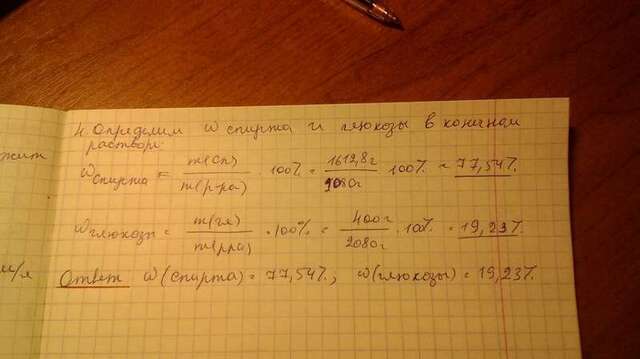 жит
м/л
4. Определим w спирта и глюкозы в конечном
растворе:
Wспирта = m(сп)/m(р-ра) · 100% = 1612,8г/2080г · 100% = 77,54%.
Wглюкозы = m(гл)/m(р-ра) · 100% = 400г/2080г · 100% = 19,23%.
Ответ w(спирта) = 77,54%, w(глюкозы) = 19,23%.